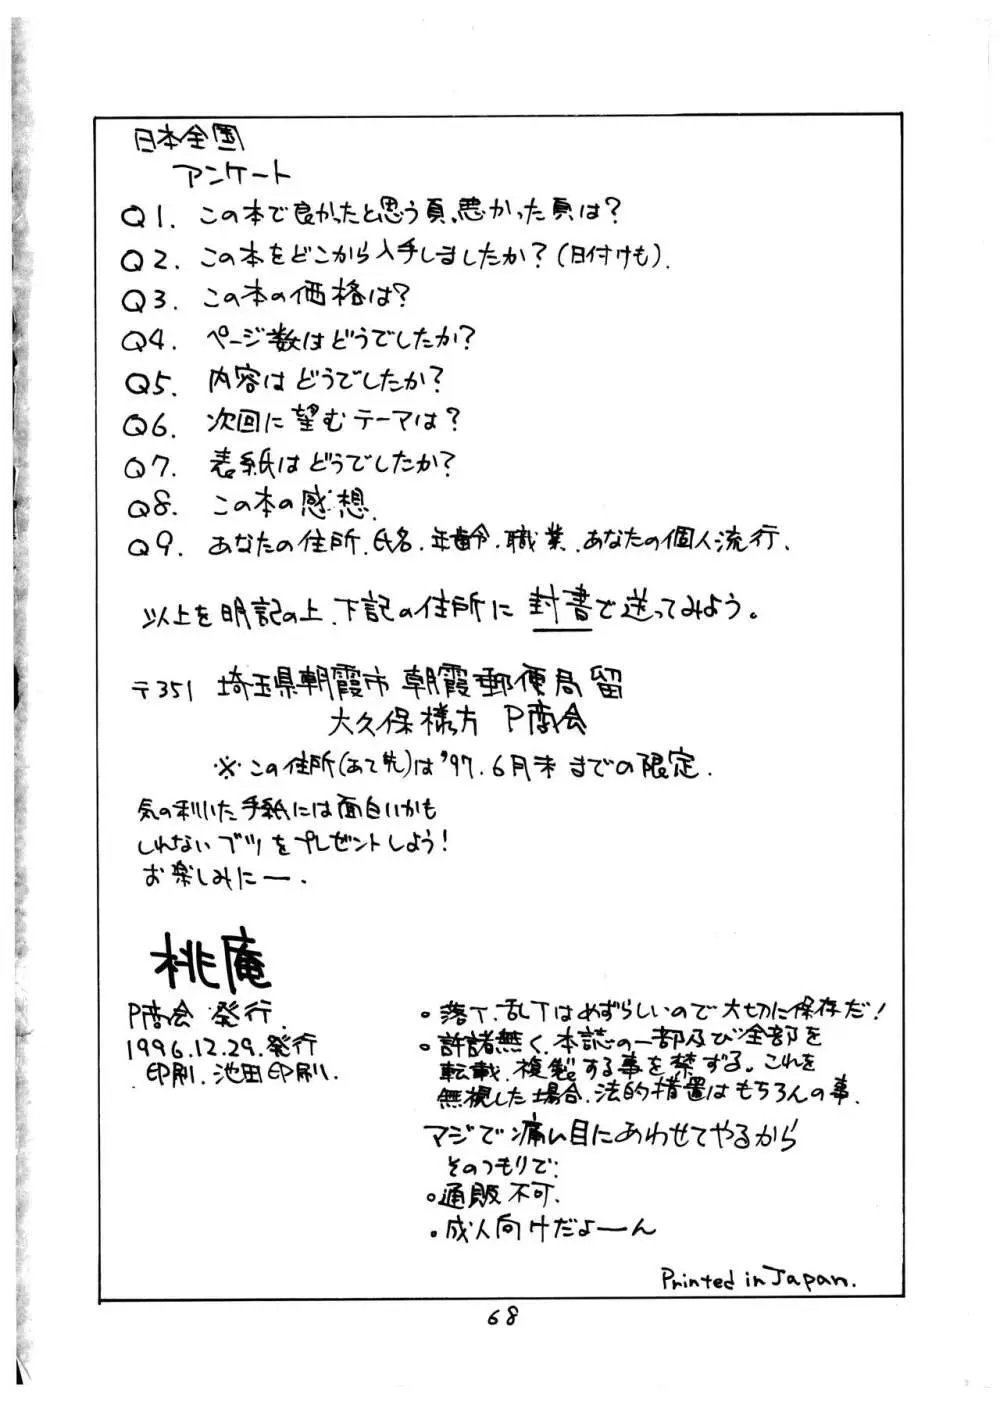 日本全国
アンケート
Q1. この本で良かったと思う頁、悪かった頁は?
Q2. この本をどこから入手しましたか?(日付けも).
Q3. この本の価格は?
Q4. ページ数はどうでしたか?
Q5. 内容はどうでしたか?
Q6. 次回に望むテーマは?
Q7. 表紙はどうでしたか?
Q8. この本の感想.
Q9. あなたの住所.氏名.年齢.職業.あなたの個人流行.
以上を明記の上、下記の住所に封書で送ってみよう。
〒351 埼玉県朝霞市 朝霞郵便局留
大久保様方 P商会
※この住所(あて先)は'97.6月末までの限定.
気の利いた手紙には面白いかも
しれないブツをプレゼントしよう!
お楽しみにー.
桃庵
P商会 発行.
1996.12.29.発行
印刷.池田印刷.
・落丁.乱丁はめずらしいので大切に保存だ!
・許諾無く、本誌の一部及び全部を
転載.複製する事を禁ずる。これを
無視した場合.法的措置はもちろんの事.
マジで痛い目にあわせてやるから
そのつもりで.
・通販不可.
・成人向けだよーん
Printed in Japan.
68